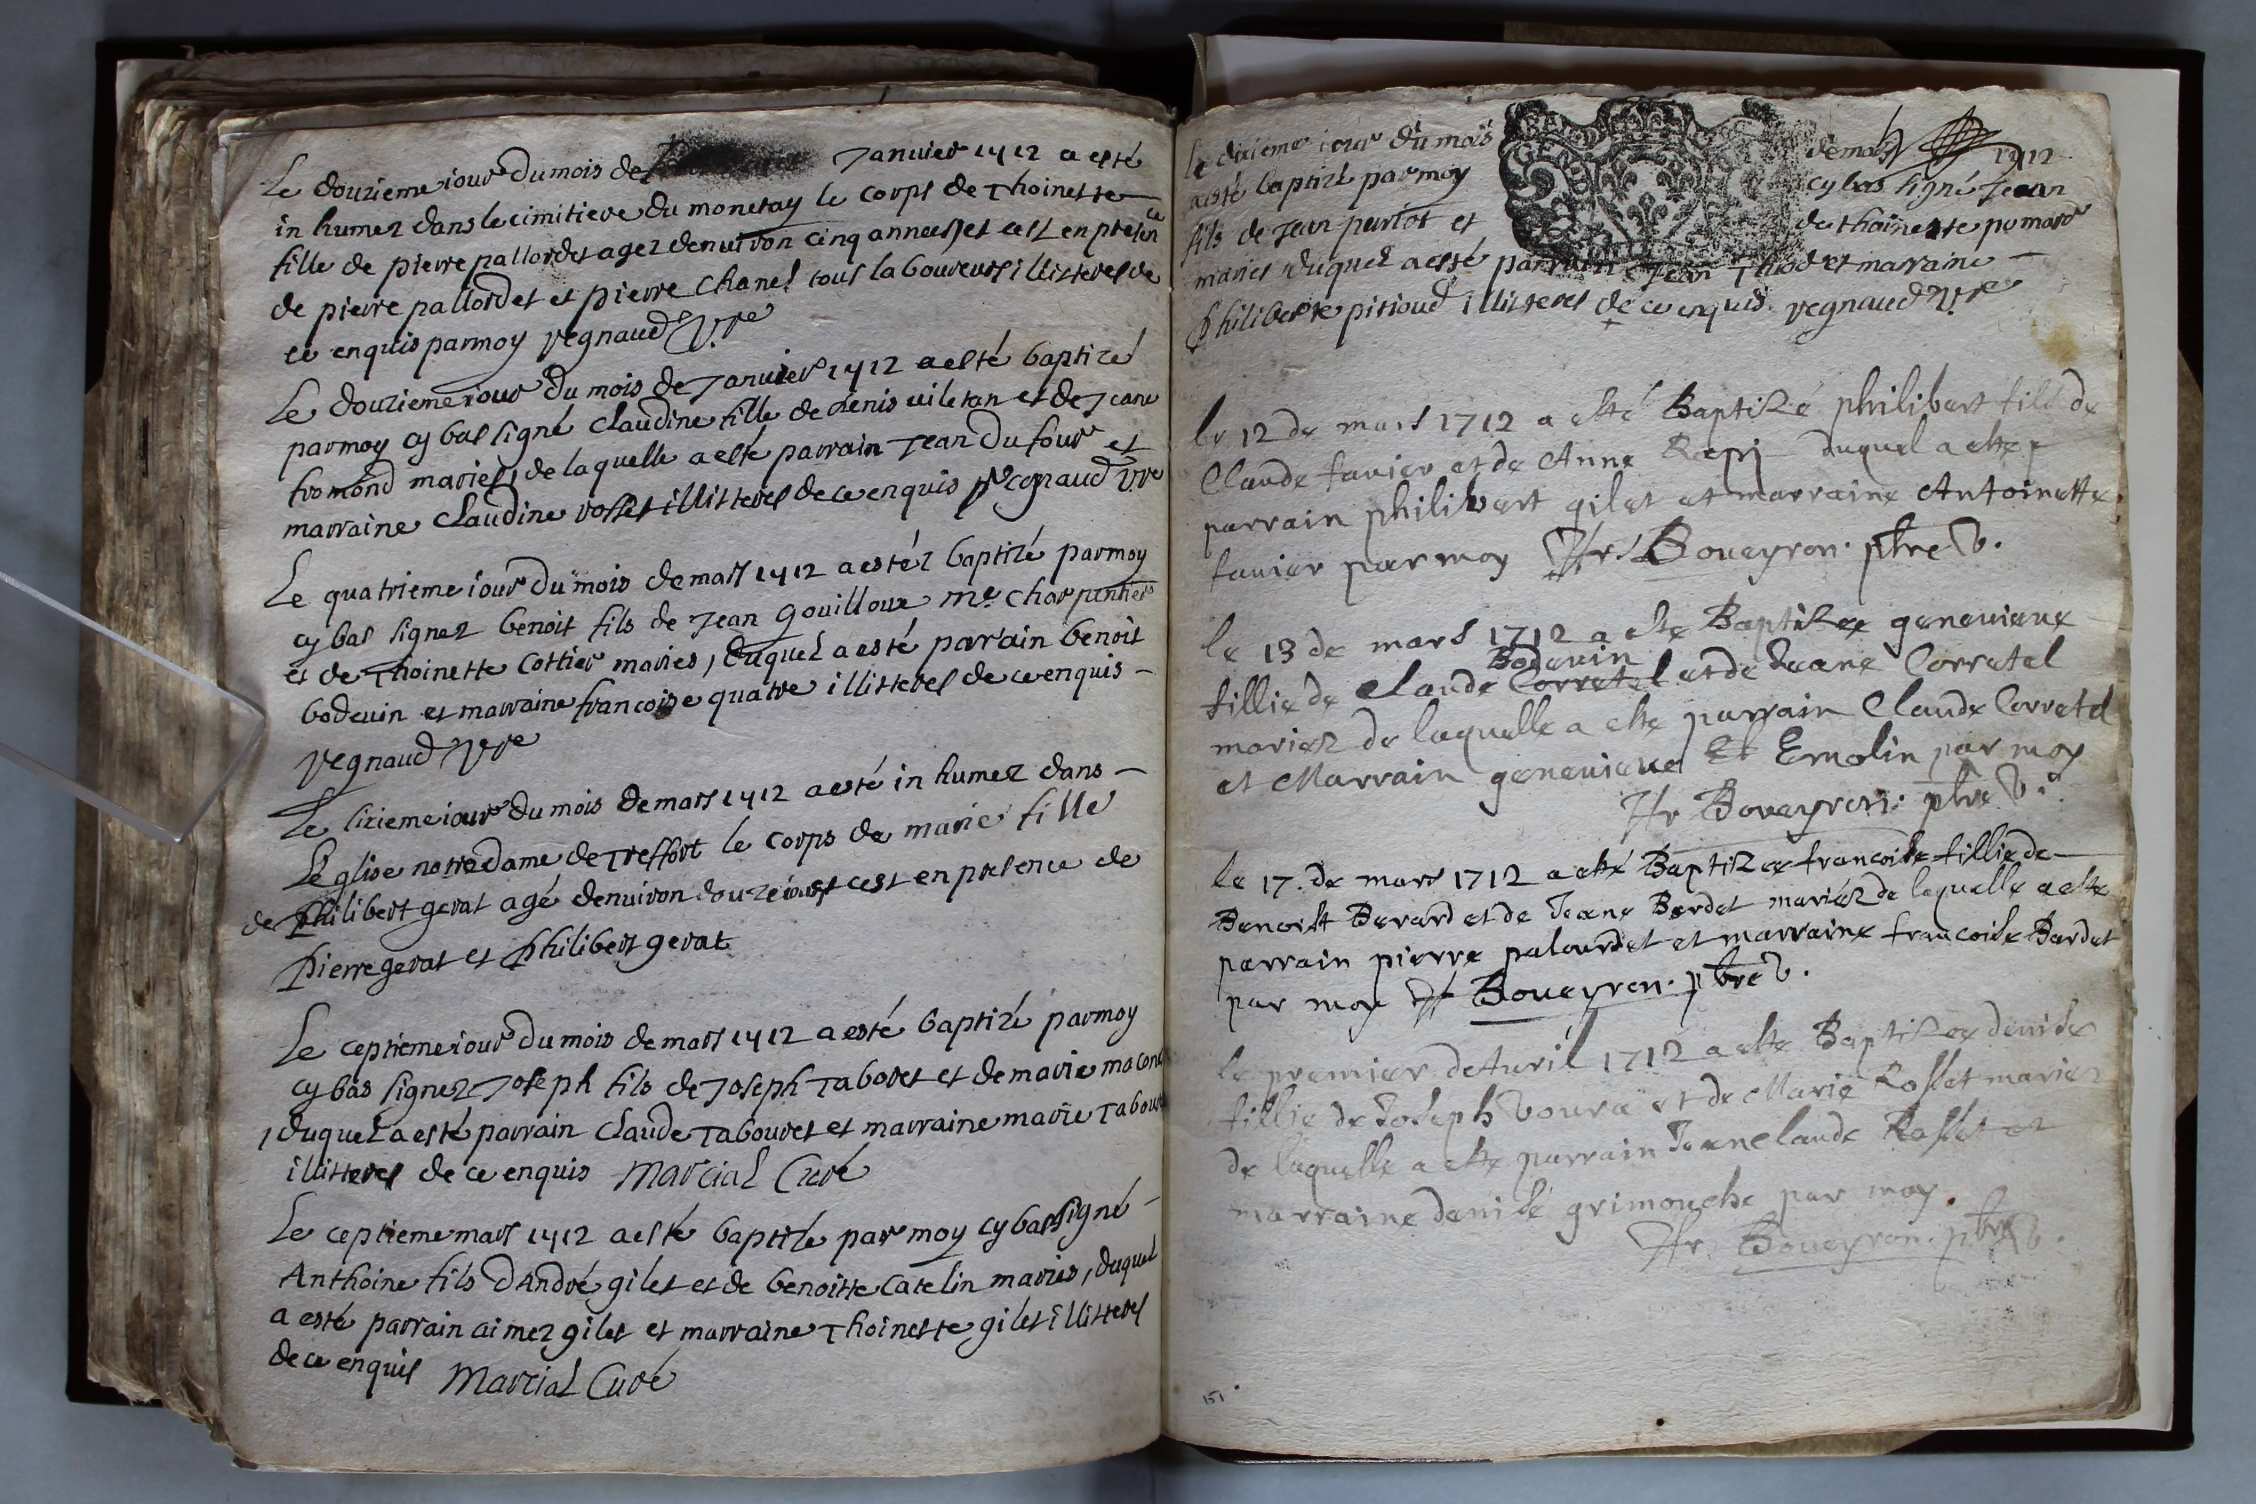 Le douzieme iour du mois de Januier 1712 a esté
in humez dans le cimitiere du monetay le corps de Thoinette
fille de pierre pallordet agez denuiron cinq annees et cest en presence
de pierre pallordet et pierre Chanel tous laboureurs illitteres de
ce enquis par moy regnaud Vre
Le douzieme iour du mois de Januier 1712 a esté baptizé
par moy cy bas signé Claudine fille de denis uiletan et de Jeane
fromond maries, de laquelle a esté parrain Jean Dufour et
marraine Claudine rosset illitteres de ce enquis regnaud Vre
Le quatrieme iour du mois de mars 1712 a estéz baptizé par moy
cy bas signez benoit fils de Jean Gouilloux me. charpentier
et de Thoinette Cottier maries, duquel a esté parrain benoit
boduin et marraine francoise quatre illitteres de ce enquis
regnaud Vre
Le sizieme iour du mois de mars 1712 a esté in humez dans
Leglise notre dame de Treffort le corps de marie fille
de philibert gerat agé denuiron douze iours et cest en presence de
pierre gerat et philibert gerat
Le ceptieme iour du mois de mars 1712 a esté baptizé par moy
cy bas signez Joseph fils de Joseph Taboret et de marie macon
, duquel a esté parrain Claude Tabouret et marraine marie Tabou
illitteres de ce enquis Marcial Curé
Le ceptieme mars 1712 a esté baptizé par moy cy bas signé
Anthoine fils dAndré gilet et de benoitte Catelin maries, duquel
a esté parrain aimez gilet et marraine Thoinette gilet illitteres
de ce enquis Marcial Curé
Le dizieme iour du mois de mars 1712
a esté baptizé par moy cy bas signé Jean
fils de Jean periot et de thoinette pomard
maries duquel a esté parrain Jean Thiod et marraine
philiberte pitioud illitteres de ce enquis. regnaud Vre
le 12 de mars 1712 a esté Baptizé philibert fils de
Claude tauier et de Anne duquel a este
parrain philibert gilet et marraine Antoinette
tauier par moy Boueyron. ptre V.
le 13 de mars 1712 a este Baptizee geneuieue
Bodeuin
fillie de Claude Corretel et de Jeane Corretel
mariez de laquelle a este parrain Claude Corretel
et Marrain geneuieue Emolin par moy
Boueyron. ptre V.
le 17. de mars 1712 a esté Baptizee francoise fillie de
Benoist Berard et de Jeane Bardet mariéz de laquelle a este
parrain pierre palourdet et marraine francoise Bardet
par moy Boueyron. pbre V.
le premier de Auril 1712 a este Baptizee denise
fillie de Joseph Voura et de Marie Rosset mariez
de laquelle a este parrain Jeanclaude Rosset et
marraine denise grimouche par moy.
Boueyron. pbre V.
151